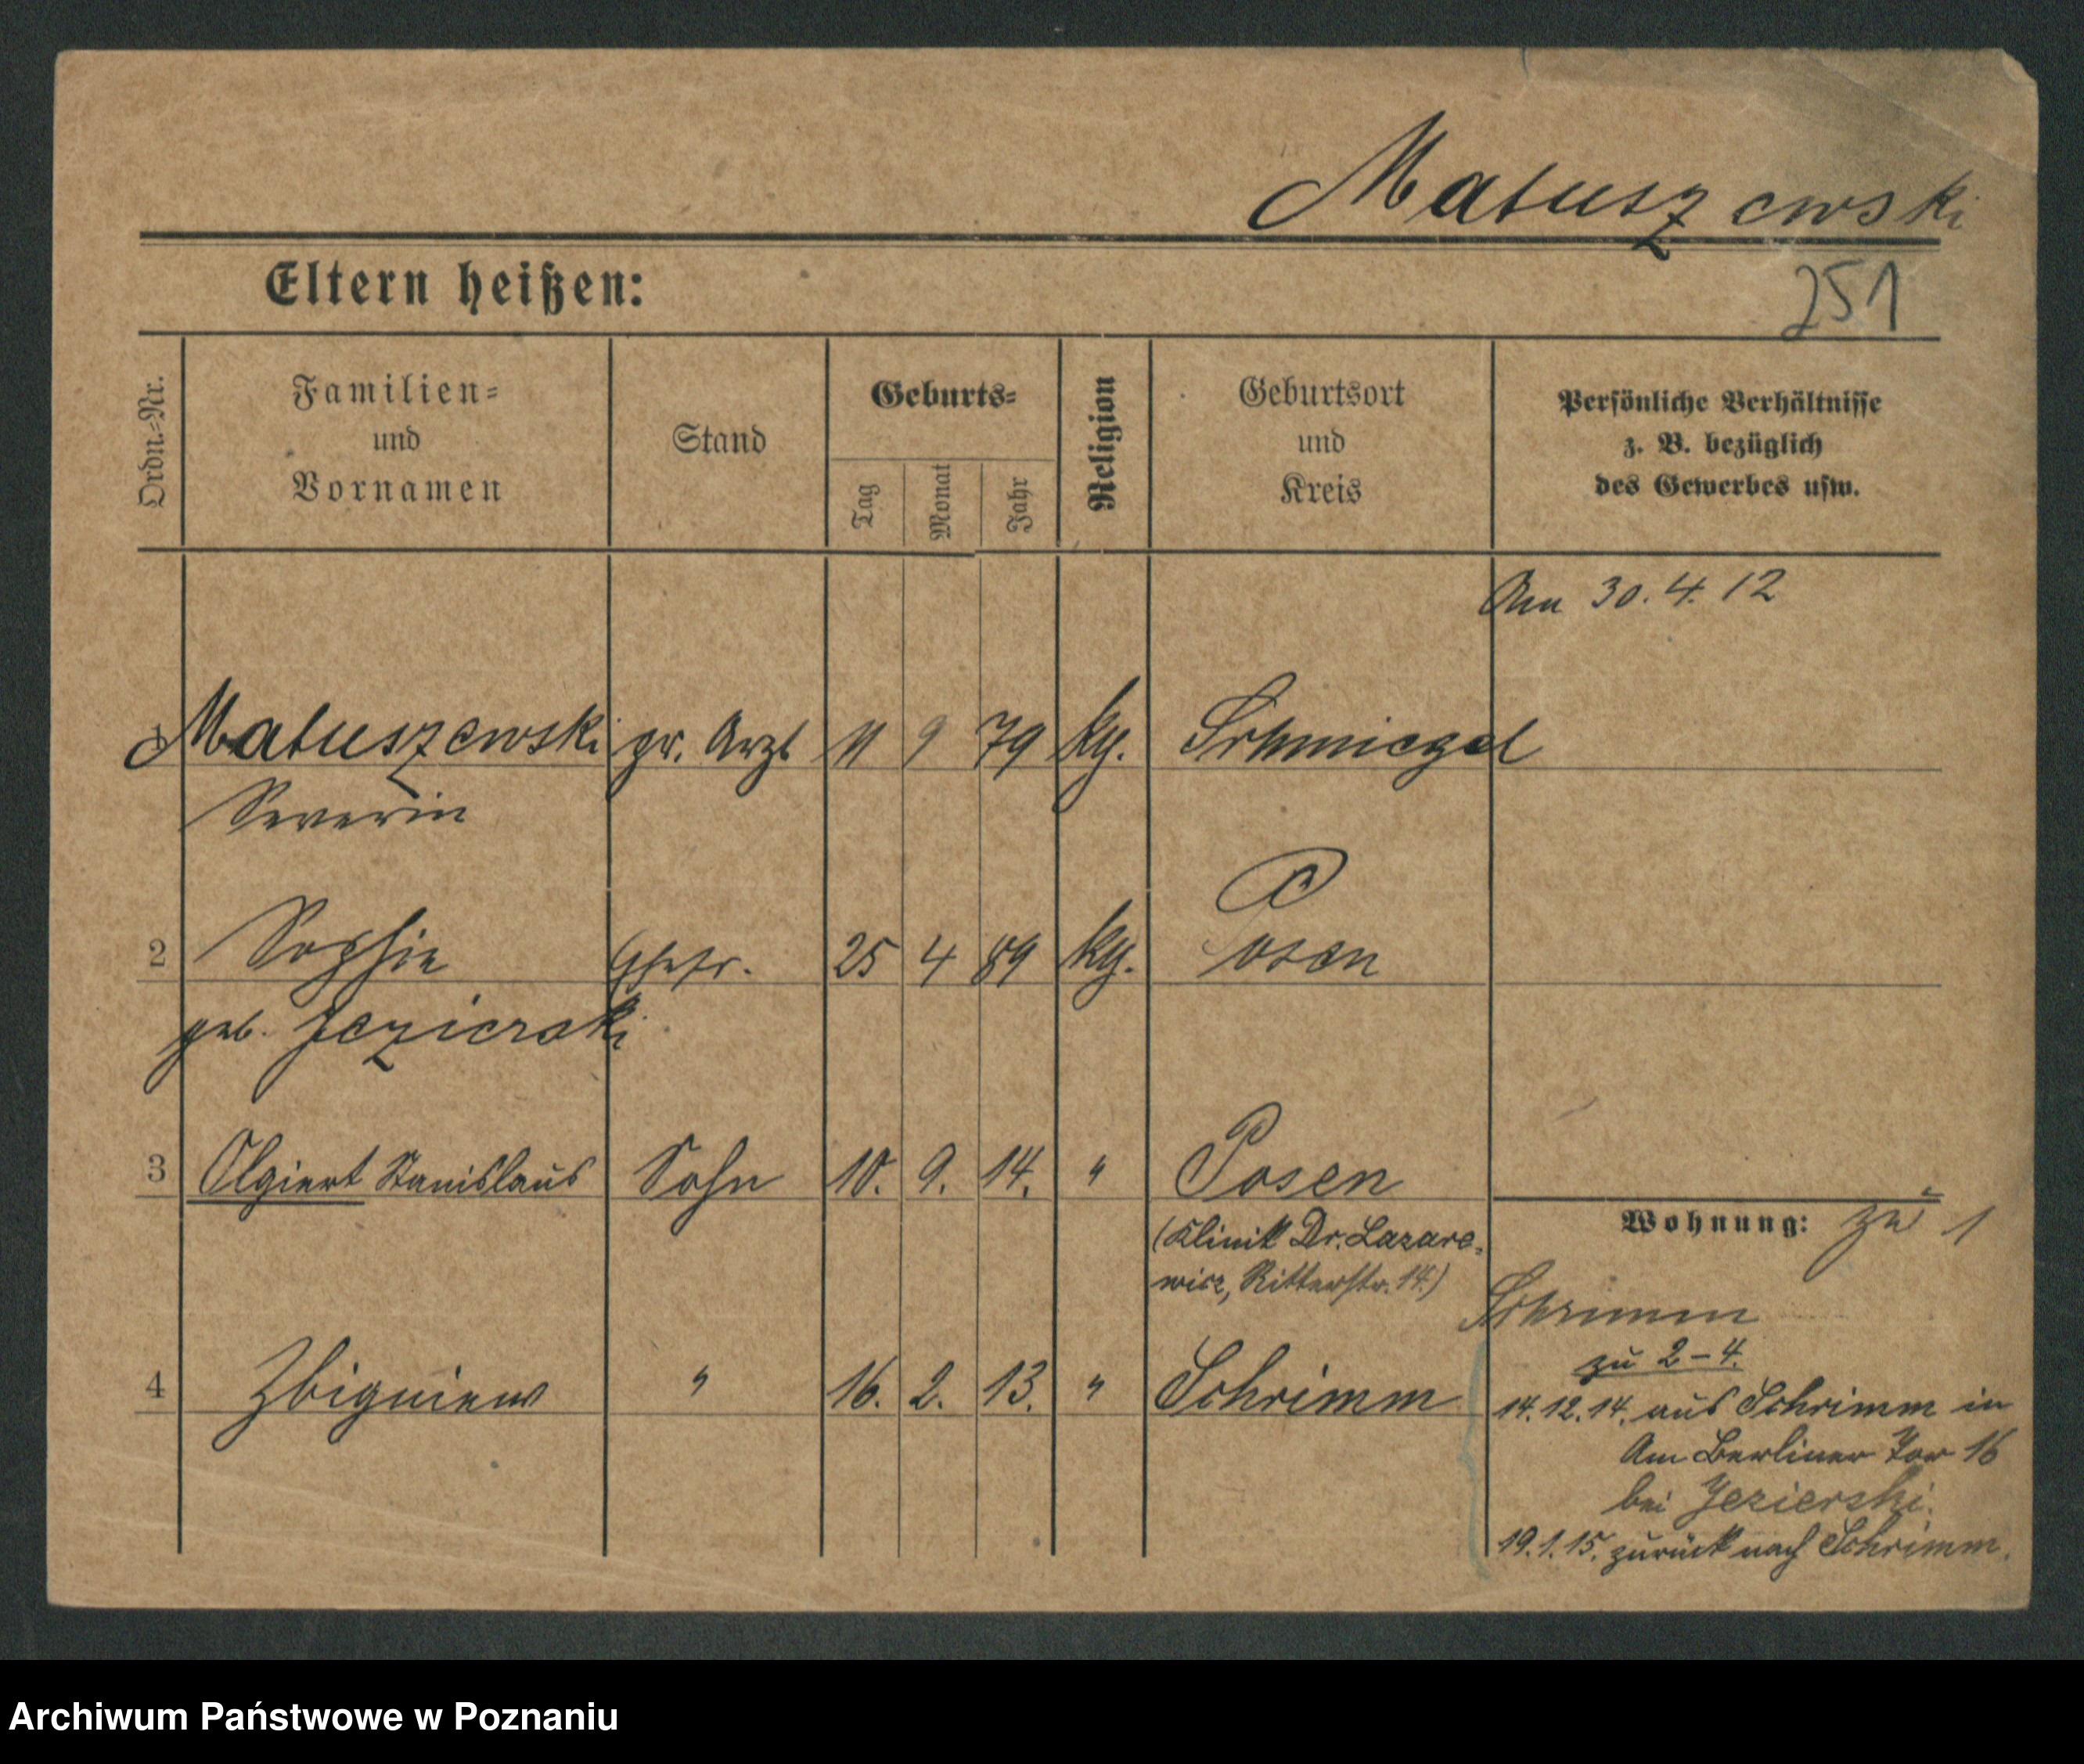 Matuszewski
251
Eltern heißen:
Ordn.=Nr.
Familien=
und
Vornamen
Stand
Geburts=
Tag
Monat
Jahr
Religion
Geburtsort
und
Kreis
Persönliche Verhältnisse
z. B. bezüglich
des Gewerbes usw.
30.4.12
1 Matuszewski pr. Arzt 11 9 79 kg. Schmiegel
Severin
2 Sophie Ehefr. 25 4 89 kg. Posen
geb. Jezierski
3 Olgiert Stanislaus Sohn 10. 9. 14. " Posen
(Klinik Dr. Lazare=
wicz, Ritterstr. 14.)
Wohnung: zu 1
Schrimm
4 Zbigniew " 16. 2. 13. " Schrimm
zu 2-4.
14.12.14. aus Schrimm in
Am Berliner Tor 16
bei Jezierski.
19.1.15. zurück nach Schrimm.
Archiwum Państwowe w Poznaniu